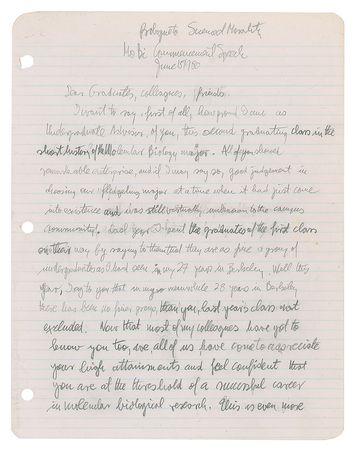 Prologue to Science & Morality
Mo Bi Commencement Speech
June 15 1980
Dear Graduates, colleagues, friends.
I want to say, first of all, how proud I am as
Undergraduate Advisor, of you, this second graduating class in the
short history of the Molecular Biology major. All of you showed
remarkable enterprise, and if I may say so, good judgement in
choosing our fledgeling major at a time when it had just come
into existence and was still virtually unknown to the campus
community. Last year I sent the graduates of the first class
on their way by saying to them that they are as fine a group of
undergraduates as I had seen in my 27 years in Berkeley. Well this
year, I say to you that in my now 28 years in Berkeley
there has been no finer group, than you, last years class not
excluded. Now that most of my colleagues have got to
know you too, we, all of us, have come to appreciate
your high attainments and feel confident that
you are at the threshold of a successful career
in molecular biological research. This is even more